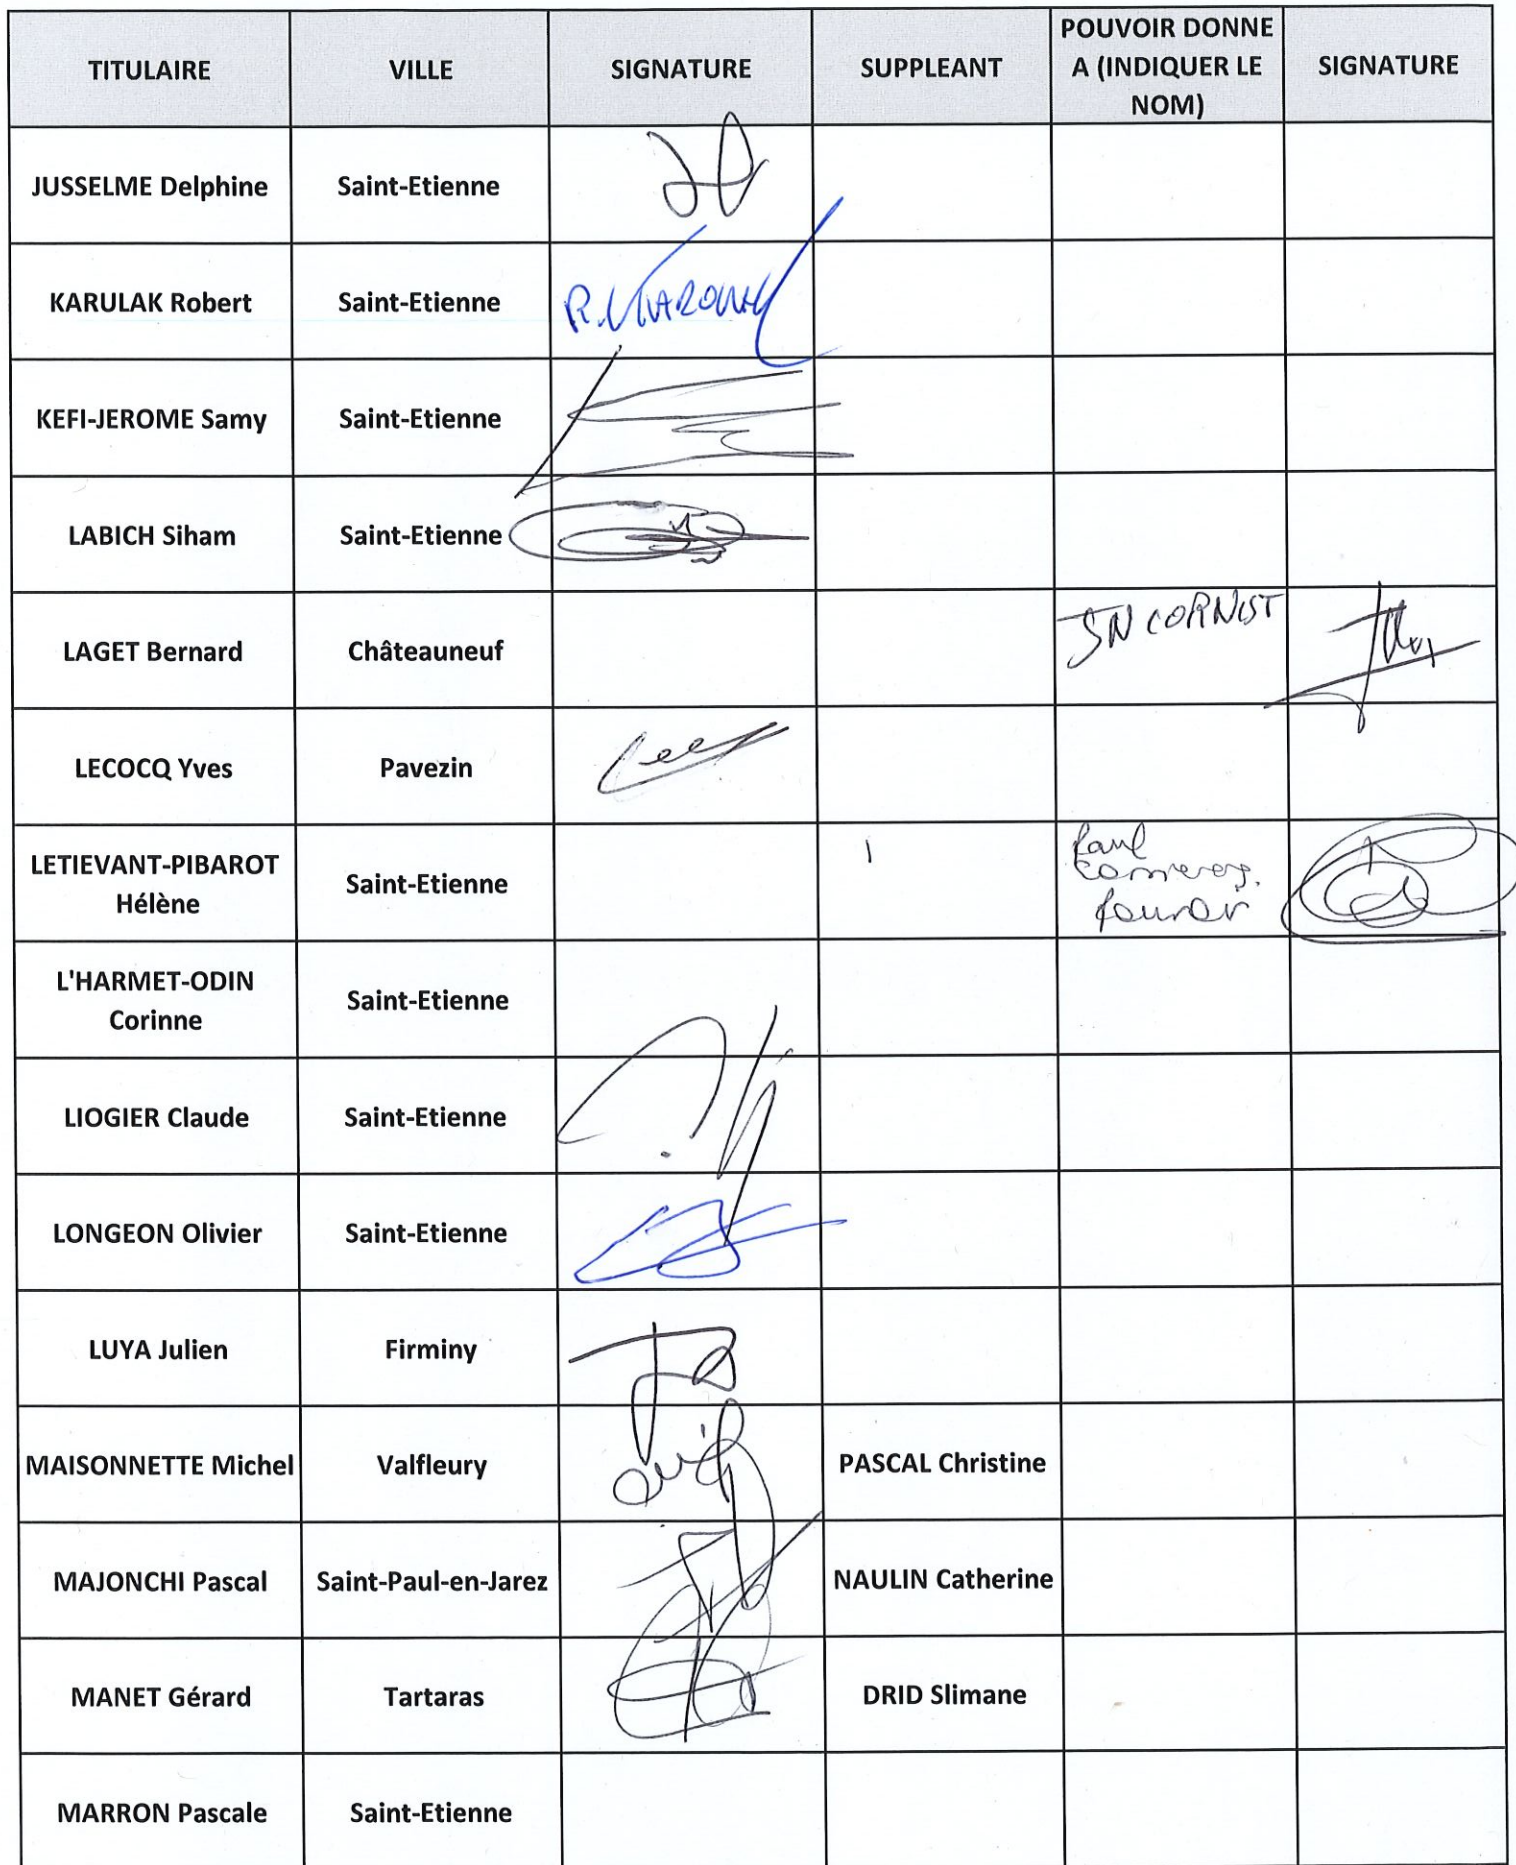 TITULAIRE
VILLE
SIGNATURE
SUPPLEANT
POUVOIR DONNE
A (INDIQUER LE
NOM)
SIGNATURE
JUSSELME Delphine
Saint-Etienne
KARULAK Robert
Saint-Etienne
KEFI-JEROME Samy
Saint-Etienne
LABICH Siham
Saint-Etienne
LAGET Bernard
Châteauneuf
JN CORNIST
LECOCQ Yves
Pavezin
LETIEVANT-PIBAROT
Hélène
Saint-Etienne
Paul
L'HARMET-ODIN
Corinne
Saint-Etienne
LIOGIER Claude
Saint-Etienne
LONGEON Olivier
Saint-Etienne
LUYA Julien
Firminy
MAISONNETTE Michel
Valfleury
PASCAL Christine
MAJONCHI Pascal
Saint-Paul-en-Jarez
NAULIN Catherine
MANET Gérard
Tartaras
DRID Slimane
MARRON Pascale
Saint-Etienne